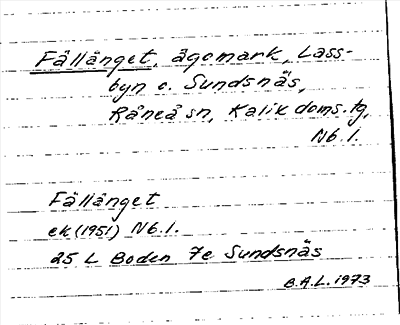 Fällänget, ägomark, Lass-
byn o. Sundsnäs,
Råneå sn, Kalix doms.tg,
Nb.l.
Fällänget
ek (1951) Nb.l.
25 L Boden 7e Sundsnäs
B.A.L. 1973